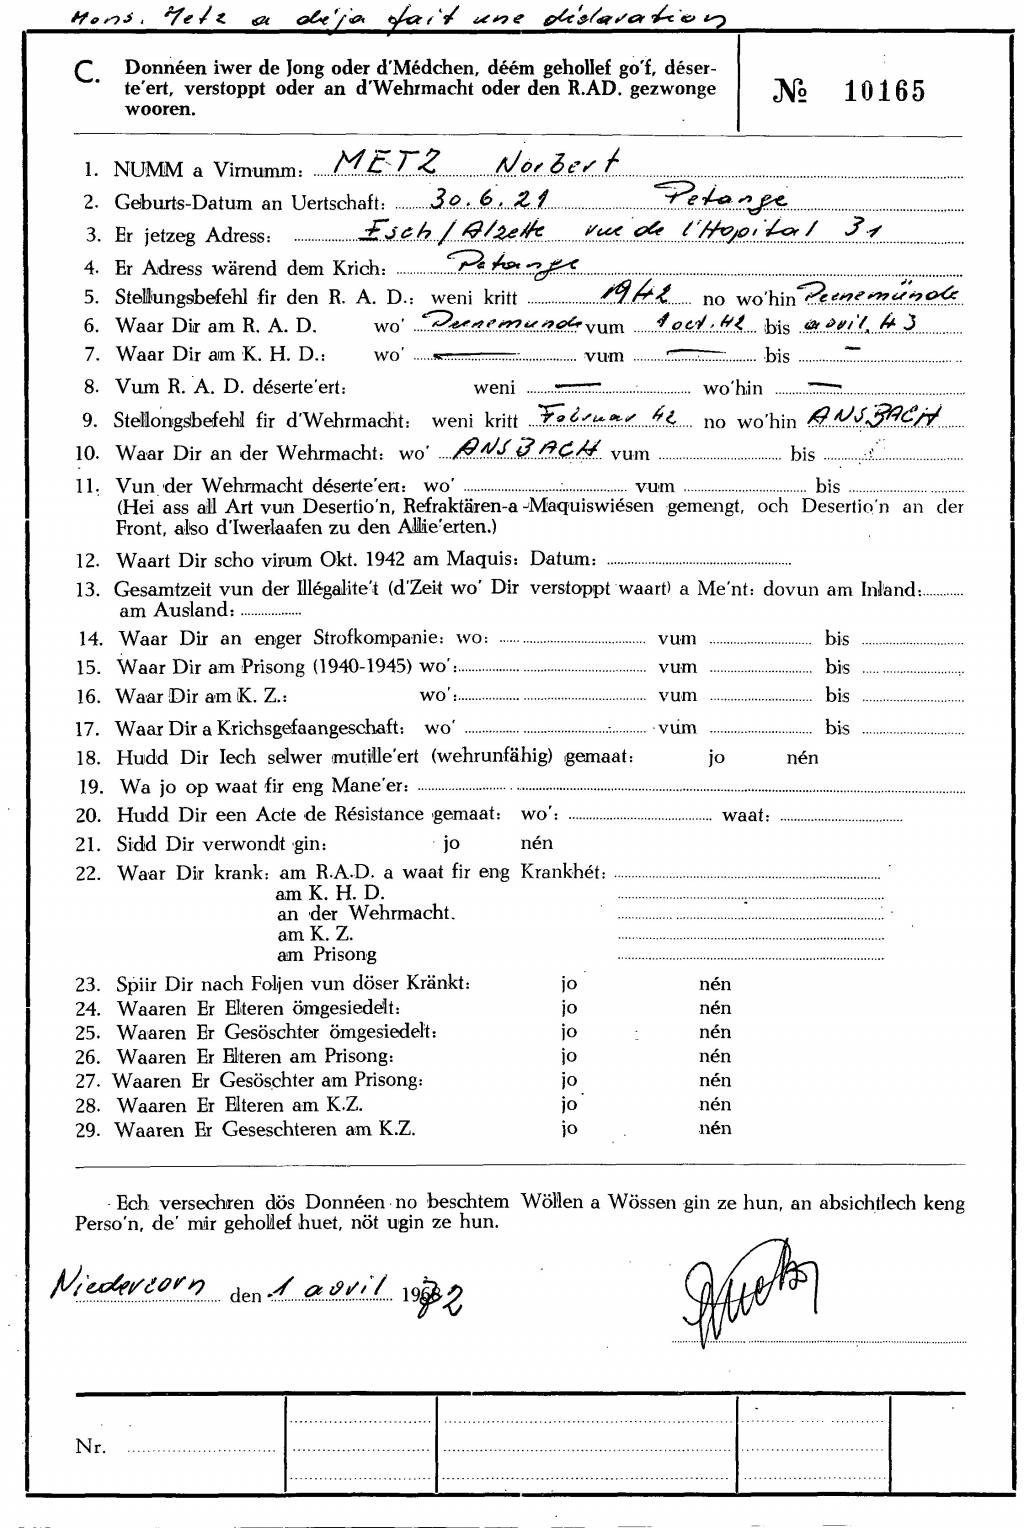 Mons. Metz a déja fait une déclaration
C. Donnéen iwer de Jong oder d'Médchen, déém gehollef go'f, déser-
te'ert, verstoppt oder an d'Wehrmacht oder den R.AD. gezwonge
wooren.
№ 10165
1. NUMM a Virnumm: METZ Norbert
2. Geburts-Datum an Uertschaft: 30.6.21 Petange
3. Er jetzeg Adress: Esch/Alzette rue de l'Hopital 31
4. Er Adress wärend dem Krich: Petange
5. Stellungsbefehl fir den R. A. D.: weni kritt 1942 no wo'hin Peenemünde
6. Waar Dir am R. A. D. wo' Peenemunde vum 1 oct. 42 bis avril. 43
7. Waar Dir am K. H. D.: wo' — vum — bis —
8. Vum R. A. D. déserte'ert: weni — wo'hin —
9. Stellongsbefehl fir d'Wehrmacht: weni kritt Februar 42 no wo'hin ANSBACH
10. Waar Dir an der Wehrmacht: wo' ANSBACH vum bis
11. Vun der Wehrmacht déserte'ert: wo' vum bis
(Hei ass all Art vun Desertio'n, Refraktären-a-Maquiswiésen gemengt, och Desertio'n an der
Front, also d'Iwerlaafen zu den Allie'erten.)
12. Waart Dir scho virum Okt. 1942 am Maquis: Datum:
13. Gesamtzeit vun der Illégalite't (d'Zeit wo' Dir verstoppt waart) a Me'nt: dovun am Inland:
am Ausland:
14. Waar Dir an enger Strofkompanie: wo: vum bis
15. Waar Dir am Prisong (1940-1945) wo': vum bis
16. Waar Dir am K. Z.: wo': vum bis
17. Waar Dir a Krichsgefaangeschaft: wo' vum bis
18. Hudd Dir Iech selwer mutille'ert (wehrunfähig) gemaat: jo nén
19. Wa jo op waat fir eng Mane'er:
20. Hudd Dir een Acte de Résistance gemaat: wo': waat:
21. Sidd Dir verwondt gin: jo nén
22. Waar Dir krank: am R.A.D. a waat fir eng Krankhét:
am K. H. D.
an der Wehrmacht.
am K. Z.
am Prisong
23. Spiir Dir nach Foljen vun döser Kränkt: jo nén
24. Waaren Er Elteren ömgesiedelt: jo nén
25. Waaren Er Gesöschter ömgesiedelt: jo nén
26. Waaren Er Elteren am Prisong: jo nén
27. Waaren Er Gesöschter am Prisong: jo nén
28. Waaren Er Elteren am K.Z. jo nén
29. Waaren Er Geseschteren am K.Z. jo nén
Ech versechren dös Donnéen no beschtem Wöllen a Wössen gin ze hun, an absichtlech keng
Perso'n, de' mir gehollef huet, nöt ugin ze hun.
Niedercorn den 1 avril 1982
Nr.